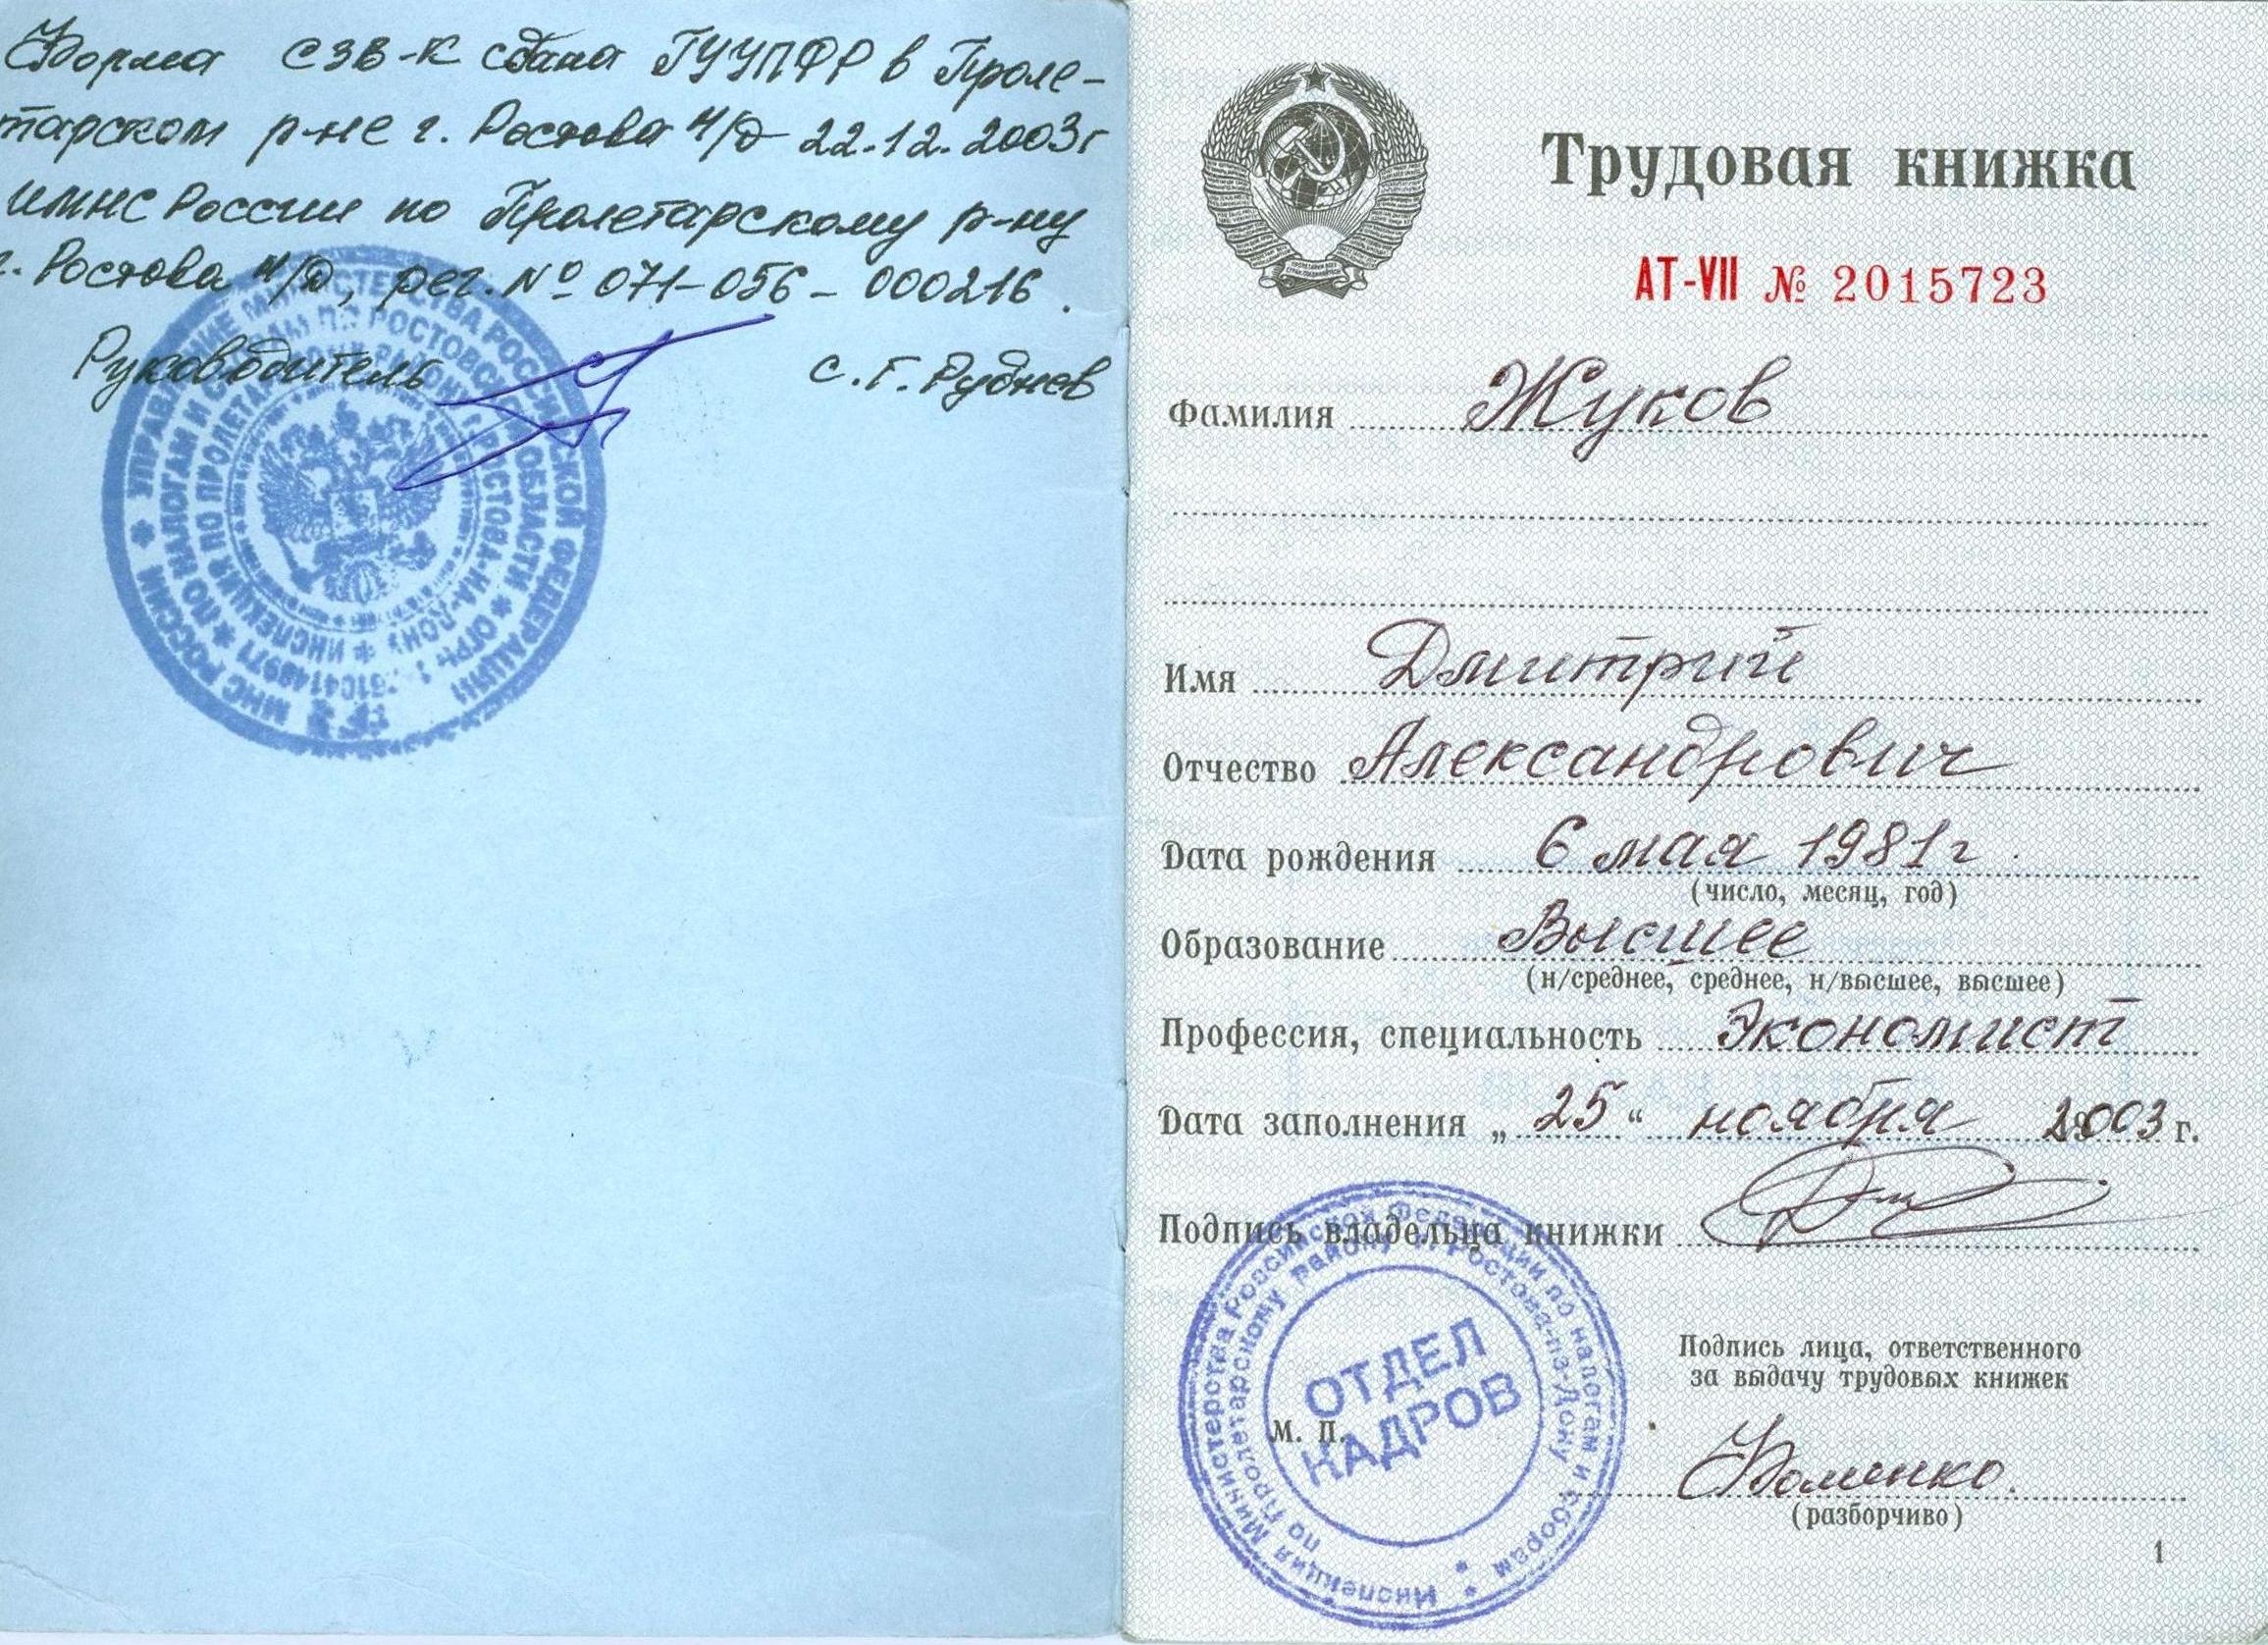 Форма СЗВ-К сдана ГУУПФР в Проле-
тарском р-не г. Ростова н/Д 22.12.2003г
ИМНС России по Пролетарскому р-ну
г. Ростова н/Д, рег. № 071-056-000216.
Руководитель С.Г. Руднев
УПРАВЛЕНИЕ МИНИСТЕРСТВА РОССИЙСКОЙ ФЕДЕРАЦИИ
ПО НАЛОГАМ И СБОРАМ ПО РОСТОВСКОЙ ОБЛАСТИ
ИНСПЕКЦИЯ ПО ПРОЛЕТАРСКОМУ РАЙОНУ Г. РОСТОВА-НА-ДОНУ
МНС РОССИИ
Трудовая книжка
АТ-VII № 2015723
Фамилия Жуков
Имя Дмитрий
Отчество Александрович
Дата рождения 6 мая 1981г.
(число, месяц, год)
Образование Высшее
(н/среднее, среднее, н/высшее, высшее)
Профессия, специальность Экономист
Дата заполнения „ 25 “ ноября 2003 г.
Подпись владельца книжки
Инспекция Министерства Российской Федерации по налогам и сборам
по Пролетарскому району г. Ростова-на-Дону
ОТДЕЛ
КАДРОВ
М. П.
Подпись лица, ответственного
за выдачу трудовых книжек
Фоменко.
(разборчиво)
1